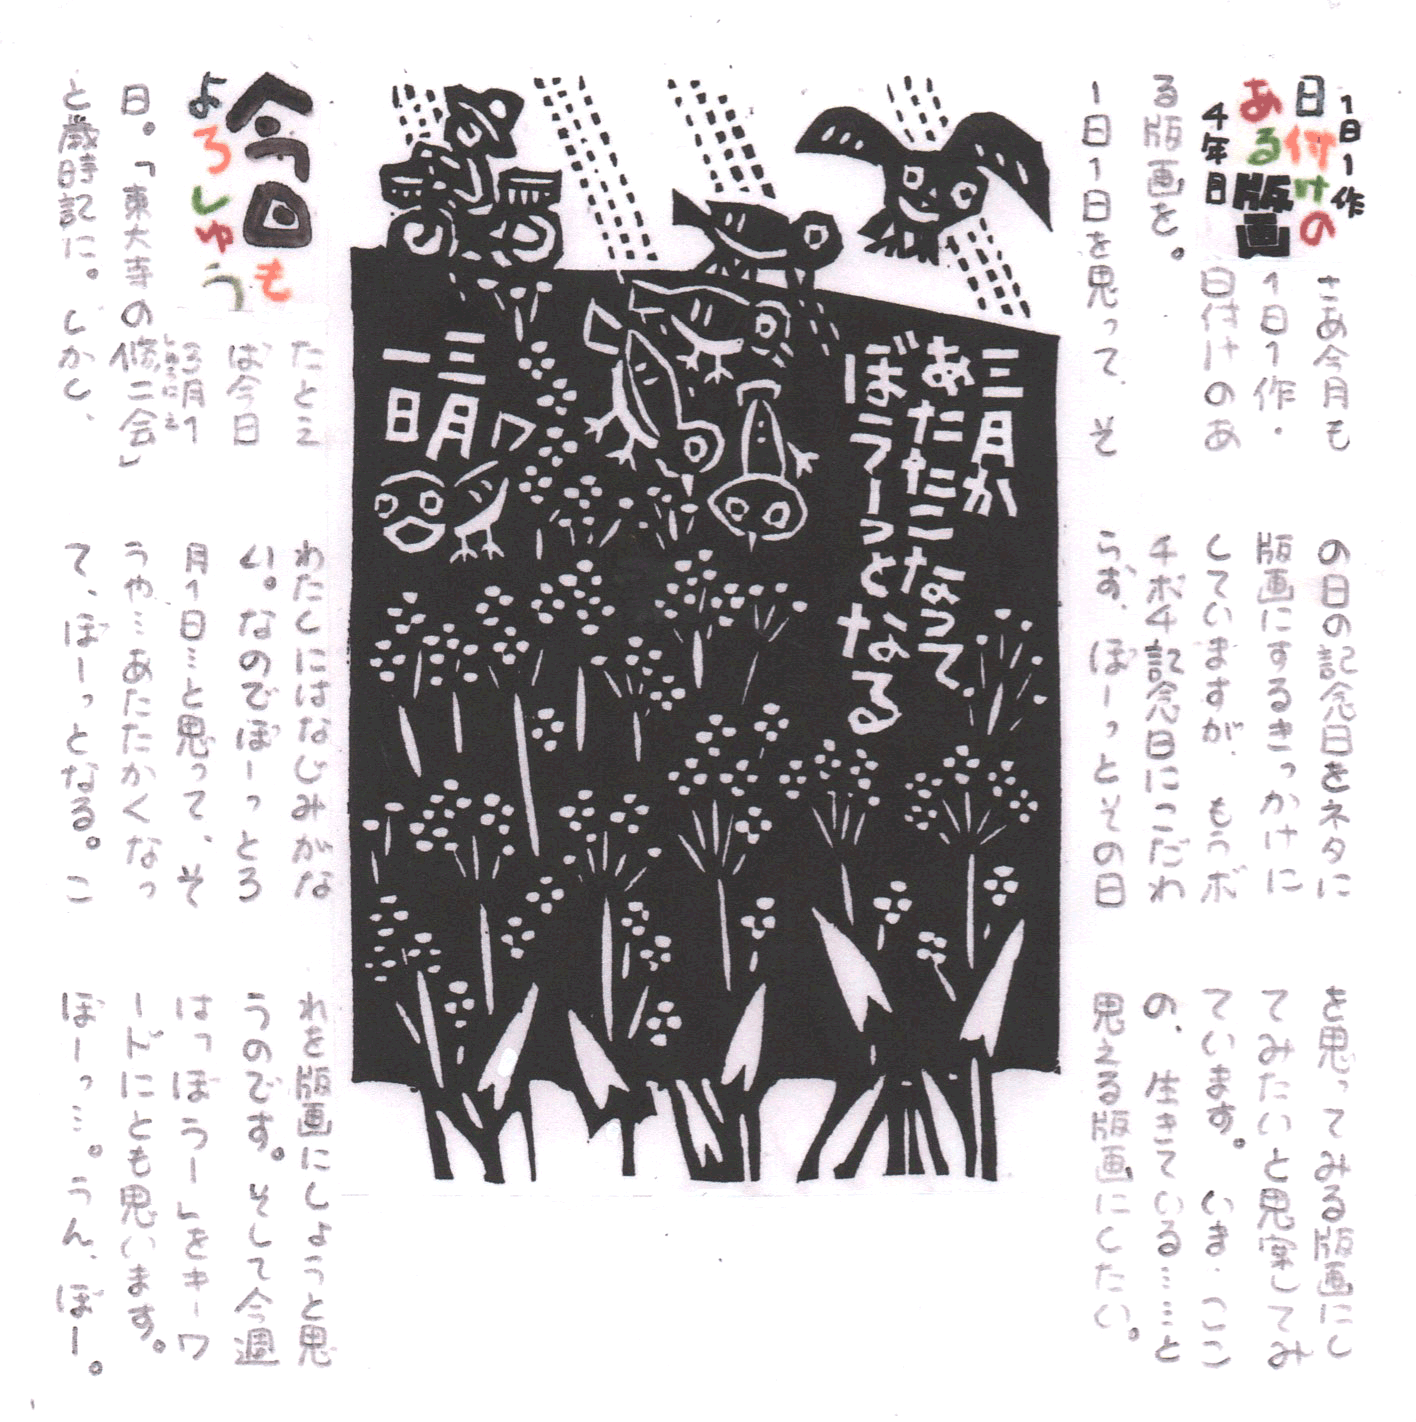 1日1作
日付けの
ある版画
4年目
さあ今月も
1日1作・
日付けのあ
る版画を。
1日1日を思って、そ
の日の記念日をネタに
版画にするきっかけに
していますが、もうボ
チボチ記念日にこだわ
らず、ぼーっとその日
を思ってみる版画にし
てみたいと思案してみ
ています。いま・ここ
の、生きている……と
思える版画にしたい。
三月か
あたたこなって
ぼうーっとなる
三月
一日
今日も
よろしゅう
たとえ
ば今日
3月1
日。「東大寺の修二会」
と歳時記に。しかし、
わたしにはなじみがな
い。なのでぼーっと3
月1日…と思って、そ
うや…あたたかくなっ
て、ぼーっとなる。こ
れを版画にしようと思
うのです。そして今週
はっぽうー」をキーワ
ードにとも思います。
ぼーっ…。うん、ぼー。